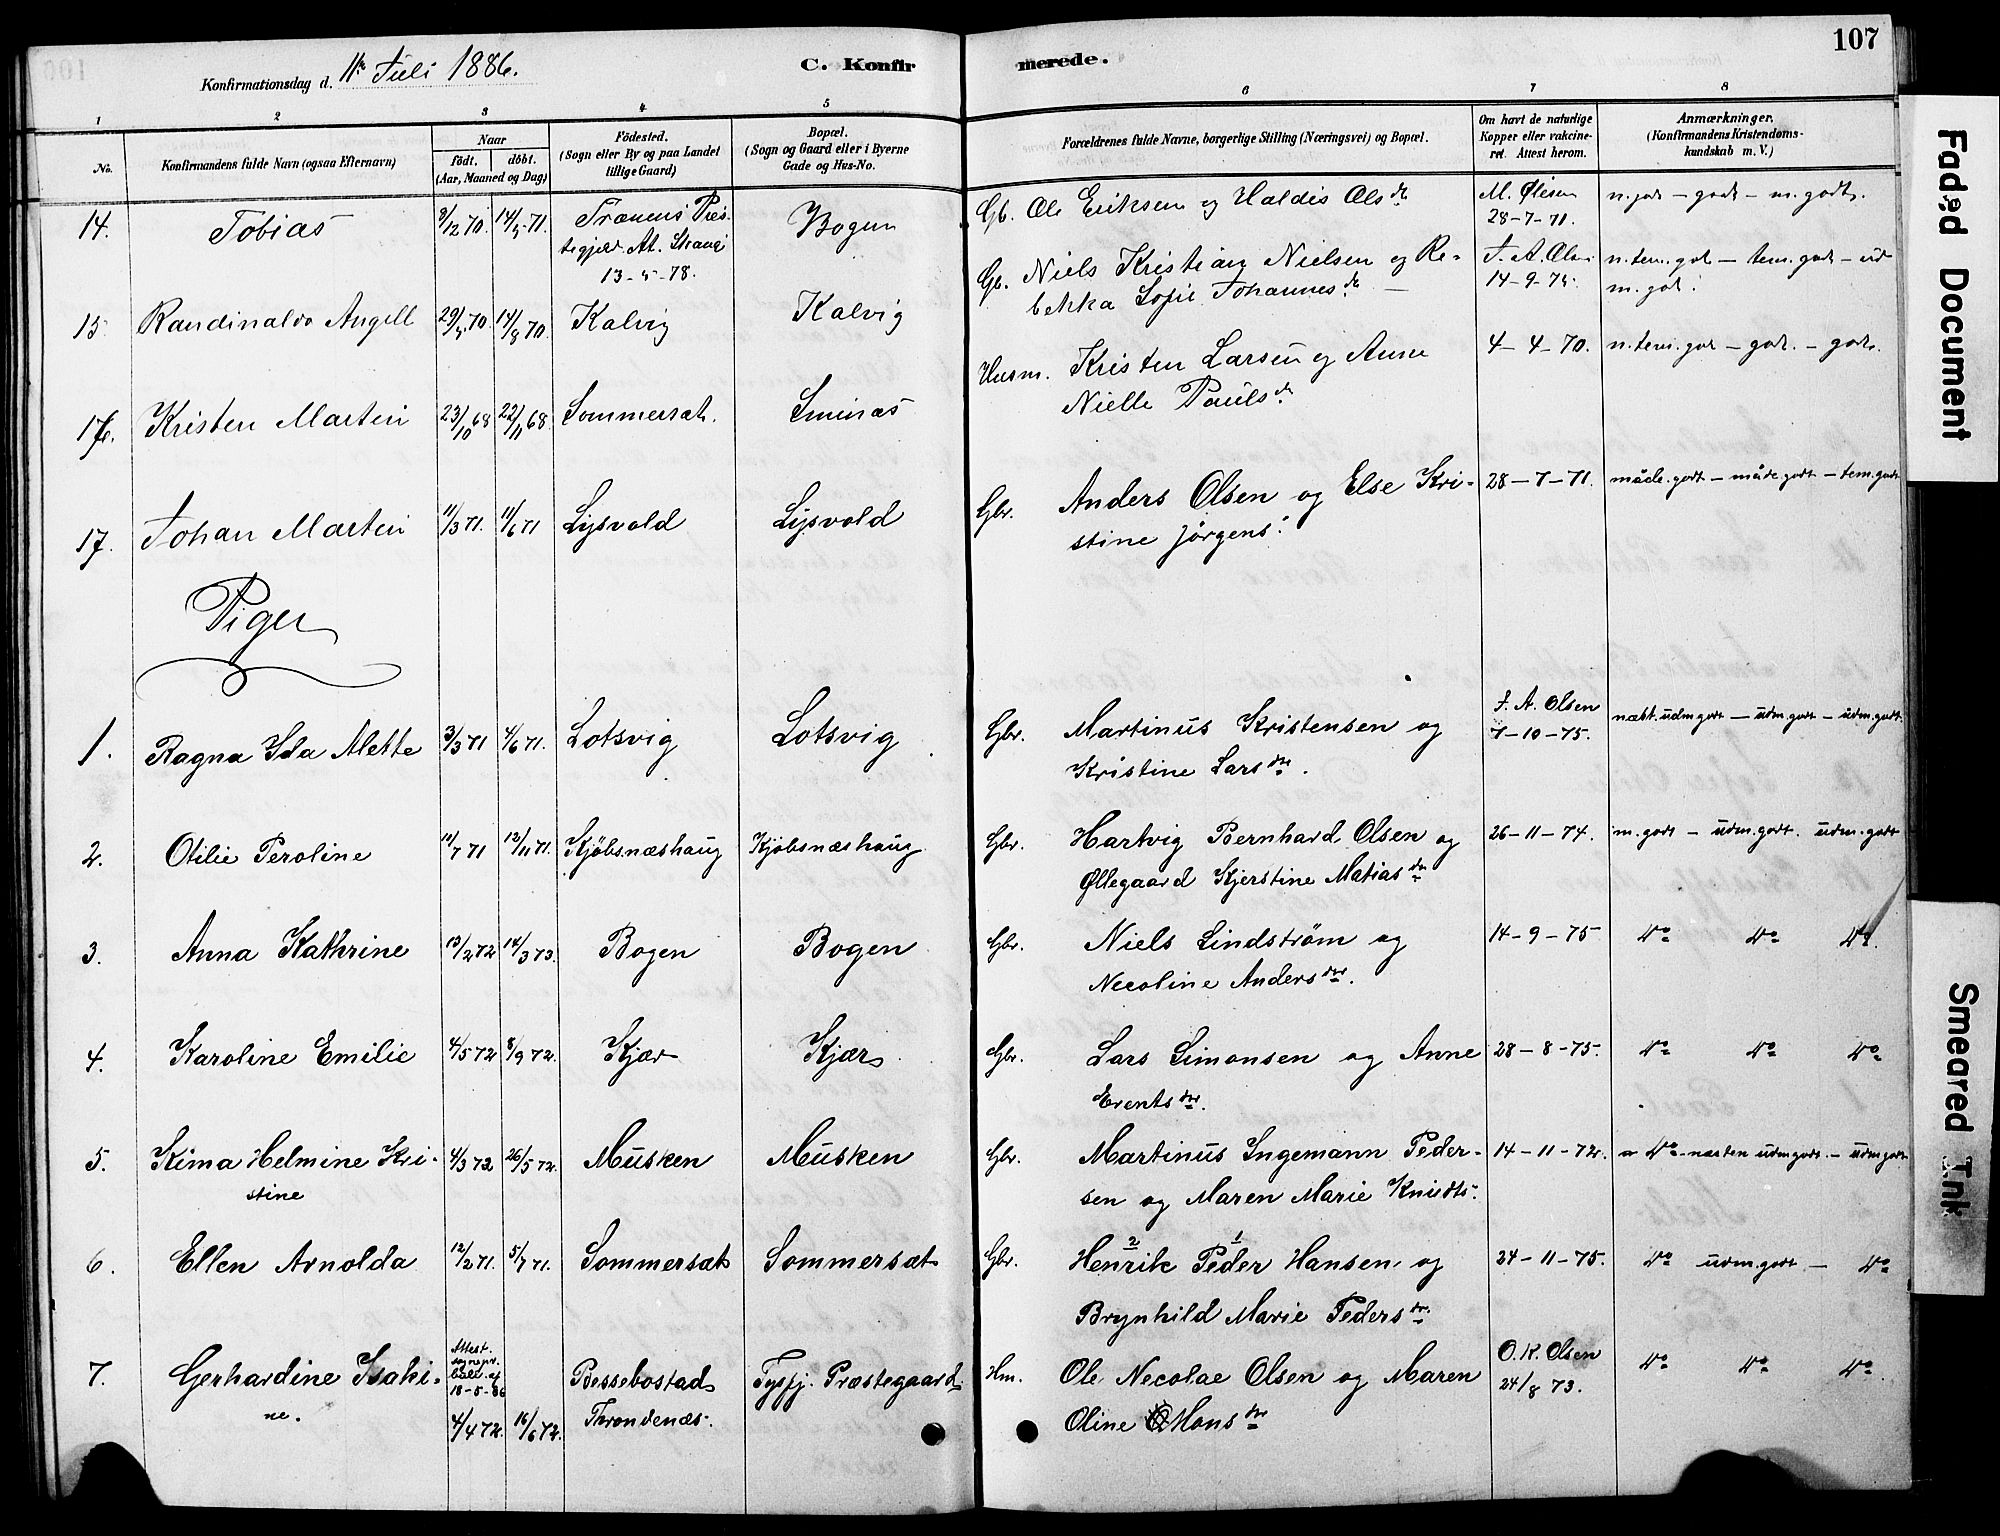 107
Konfirmationsdag d. 11te Juli 1886.
C. Konfirmerede.
1 2 3 4 5 6 7 8
No.
Konfirmandens fulde Navn (ogsaa Efternavn)
Naar
født. døbt.
(Aar, Maaned og Dag)
Fødested.
(Sogn eller By og paa Landet
tillige Gaard)
Bopæl.
(Sogn og Gaard eller i Byerne
Gade og Hus-No.
Forældrenes fulde Navne, borgerlige Stilling (Næringsvei) og Bopæl.
Om havt de naturlige
Kopper eller vakcine-
ret. Attest herom.
Anmærkninger.
(Konfirmandens Kristendoms-
kundskab m. V.)
14. Tobias 9/12 70. 14/5 71. Trænens Præs- Bogen Gb. Ole Eriksen og Haldis Olsdr M. Olsen n. godt – godt – m. godt.
tegjeld At.
13-5-78. 28-7-71.
15 Randinaldo Angell 29/5 70 14/8 70 Kalvig Kalvig Gb. Niels Kristian Nielsen og Re- J. A. Olsen n. tem. godt – tem. godt – ud
bekka Sofie Johannesdr – 14-9-75. m. godt.
16. Kristen Martin 23/10 68 22/11 68. Sommersæt. Husm. Kristen Larsen og Anne 4-4-70. n. tem. godt – godt. – godt.
Nielle Paulsdr
17. Johan Martin 11/3 71. 11/6 71 Lysvold Lysvold Gbr. Anders Olsen og Else Kri- 28-7-71. måde. godt – måde godt – tem. godt
stine Jørgens:
Piger
1. Ragna Ida Mette 3/3 71 4/6 71. Lotsvig Lotsvig Gbr. Martinus Kristensen og J. A. Olsen næst. udm godt – udm. godt – udm. godt.
Kristine Larsdtr. 7-10-75.
2. Otilie Peroline 11/7 71 12/11 71. Kjøbsnæshaug Kjøbsnæshaug Gbr. Hartvig Bernhard Olsen og 26-11-74. m. godt – udm. godt. udm. godt
Øllegaard Kjerstine Matiasdtr
3. Anna Kathrine 13/2 72 14/3 73. Bogen Bogen Gbr. Niels Lindstrøm og 14-9-75 Do Do Do.
Necoline Andersdtr.
4. Karoline Emilie 4/5 72 8/9 72. Kjær Kjær Gbr. Lars Simonsen og Anne 28-8-75. Do Do Do
Erentsdtr.
5. Kima Helmine Kri- 4/3 72 26/5 72. Musken Musken Gbr. Martinus Ingemann Peder- 14-11-72. Do – næsten udm godt. – udm godt
stine sen og Maren Marie Knudts:
6. Ellen Arnolda 12/2 71. 5/7 71. Sommersæt Sommersæt Gbr. Henrik Peder Hansen og 24-11-75. Do udm. godt – Do
2 1
Brynhild Marie Pedersdtr.
7. Gerhardine Isaki- Attest. Bessebostad Tysfj. Præstegaard. Hm. Ole Necolae Olsen og Maren O. K. Olsen Do Do Do
ne. 18-5-86 Throndenæs. Oline Monsdtr 24/8 73.
4/4 72. 16/6 72.
Faded Document
Smeared Ink